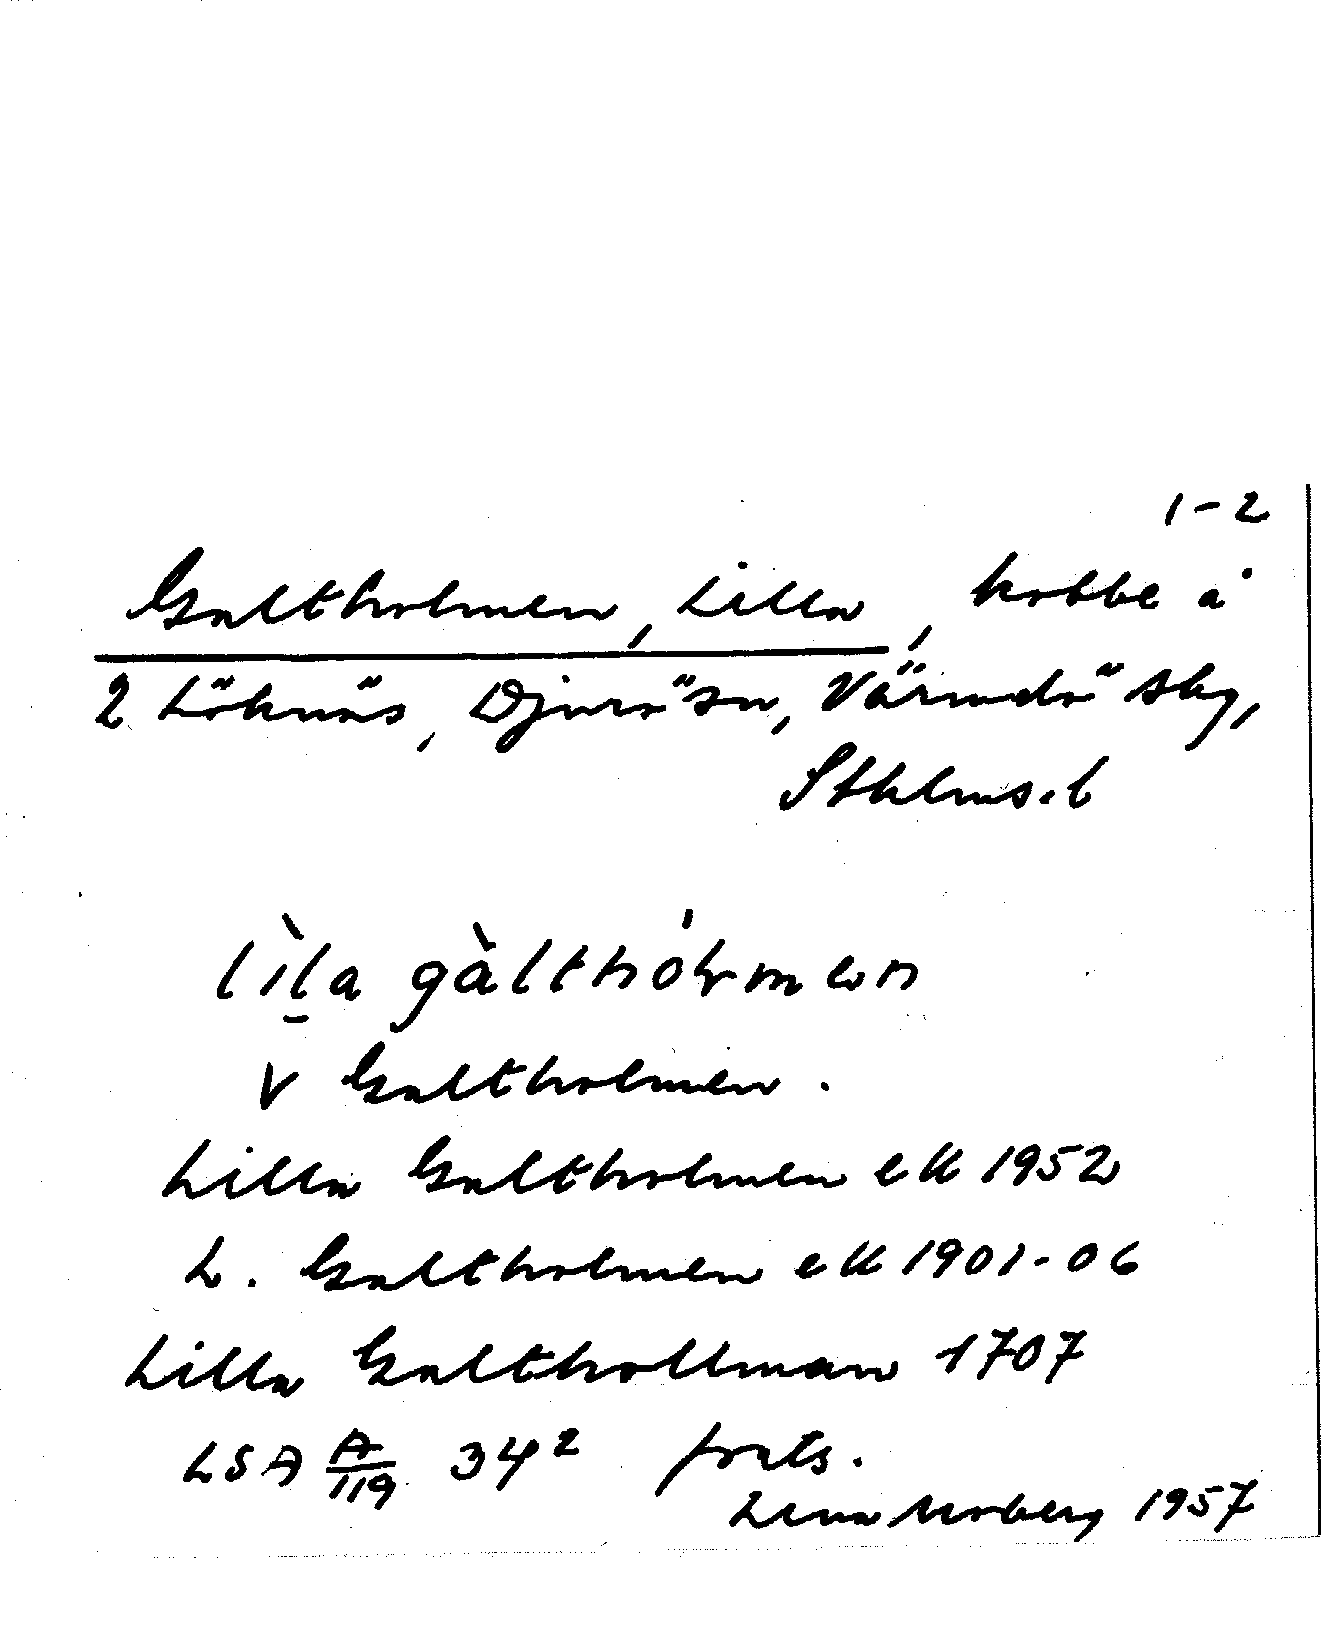 1-2
Galtholmen, Lilla, kobbe å
2 Löknäs, Djurö sn, Värmdö skg,
Sthlms.l
lìla gàlthólmen
V Galtholmen.
Lilla Galtholmen ek 1952
L. Galtholmen ek 1901-06
Lilla Galthollman 1707
LSA A/119 34²   forts.
Lena Moberg 1957